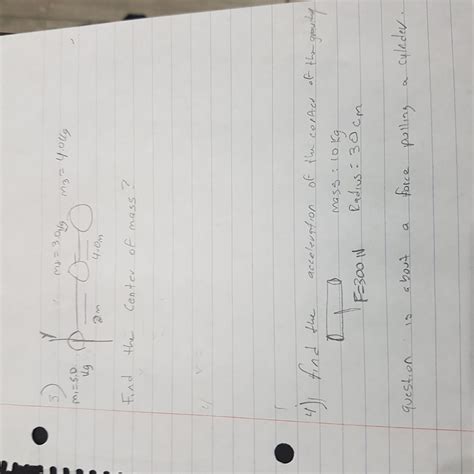 3)
y
m1=5.0 kg
m2=3.0kg
m3=4.0kg
2m
4.0m
Find the center of mass?
4) find the acceleration of the of the gravity
mass: 10 kg
F=300 N
Radius: 30 cm
question is about a force pulling a cylinder.